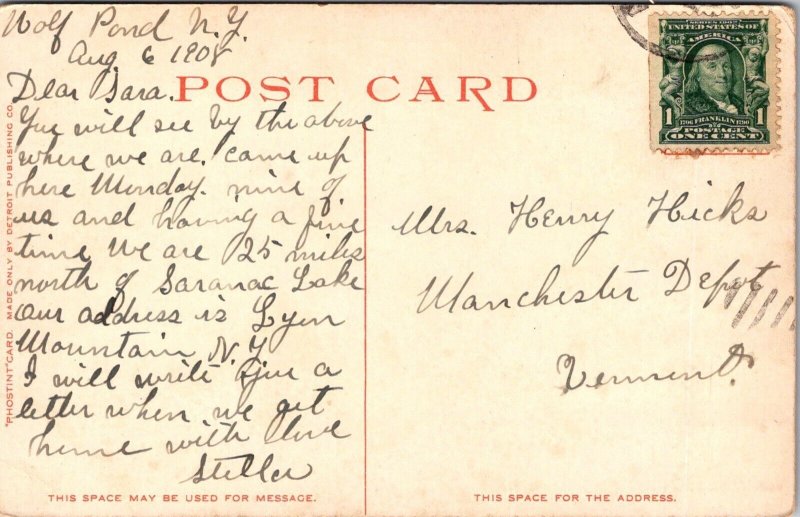 Wolf Pond N.Y.
Aug 6 1908
Dear Sara.
POST CARD
You will see by the above
where we are. came up
here Monday. nine of
us and having a fine
time We are 25 miles
north of Saranac Lake
Our address is Lyon
Mountain N.Y
I will write you a
letter when we get
home with love
Stella
THIS SPACE MAY BE USED FOR MESSAGE.
"PHOSTINT" CARD. MADE ONLY BY DETROIT PUBLISHING CO.
SERIES 1902
UNITED STATES OF
AMERICA
1 1
1706 FRANKLIN 1790
POSTAGE
ONE CENT
Mrs. Henry Hicks
Manchester Depot
Vermont.
THIS SPACE FOR THE ADDRESS.